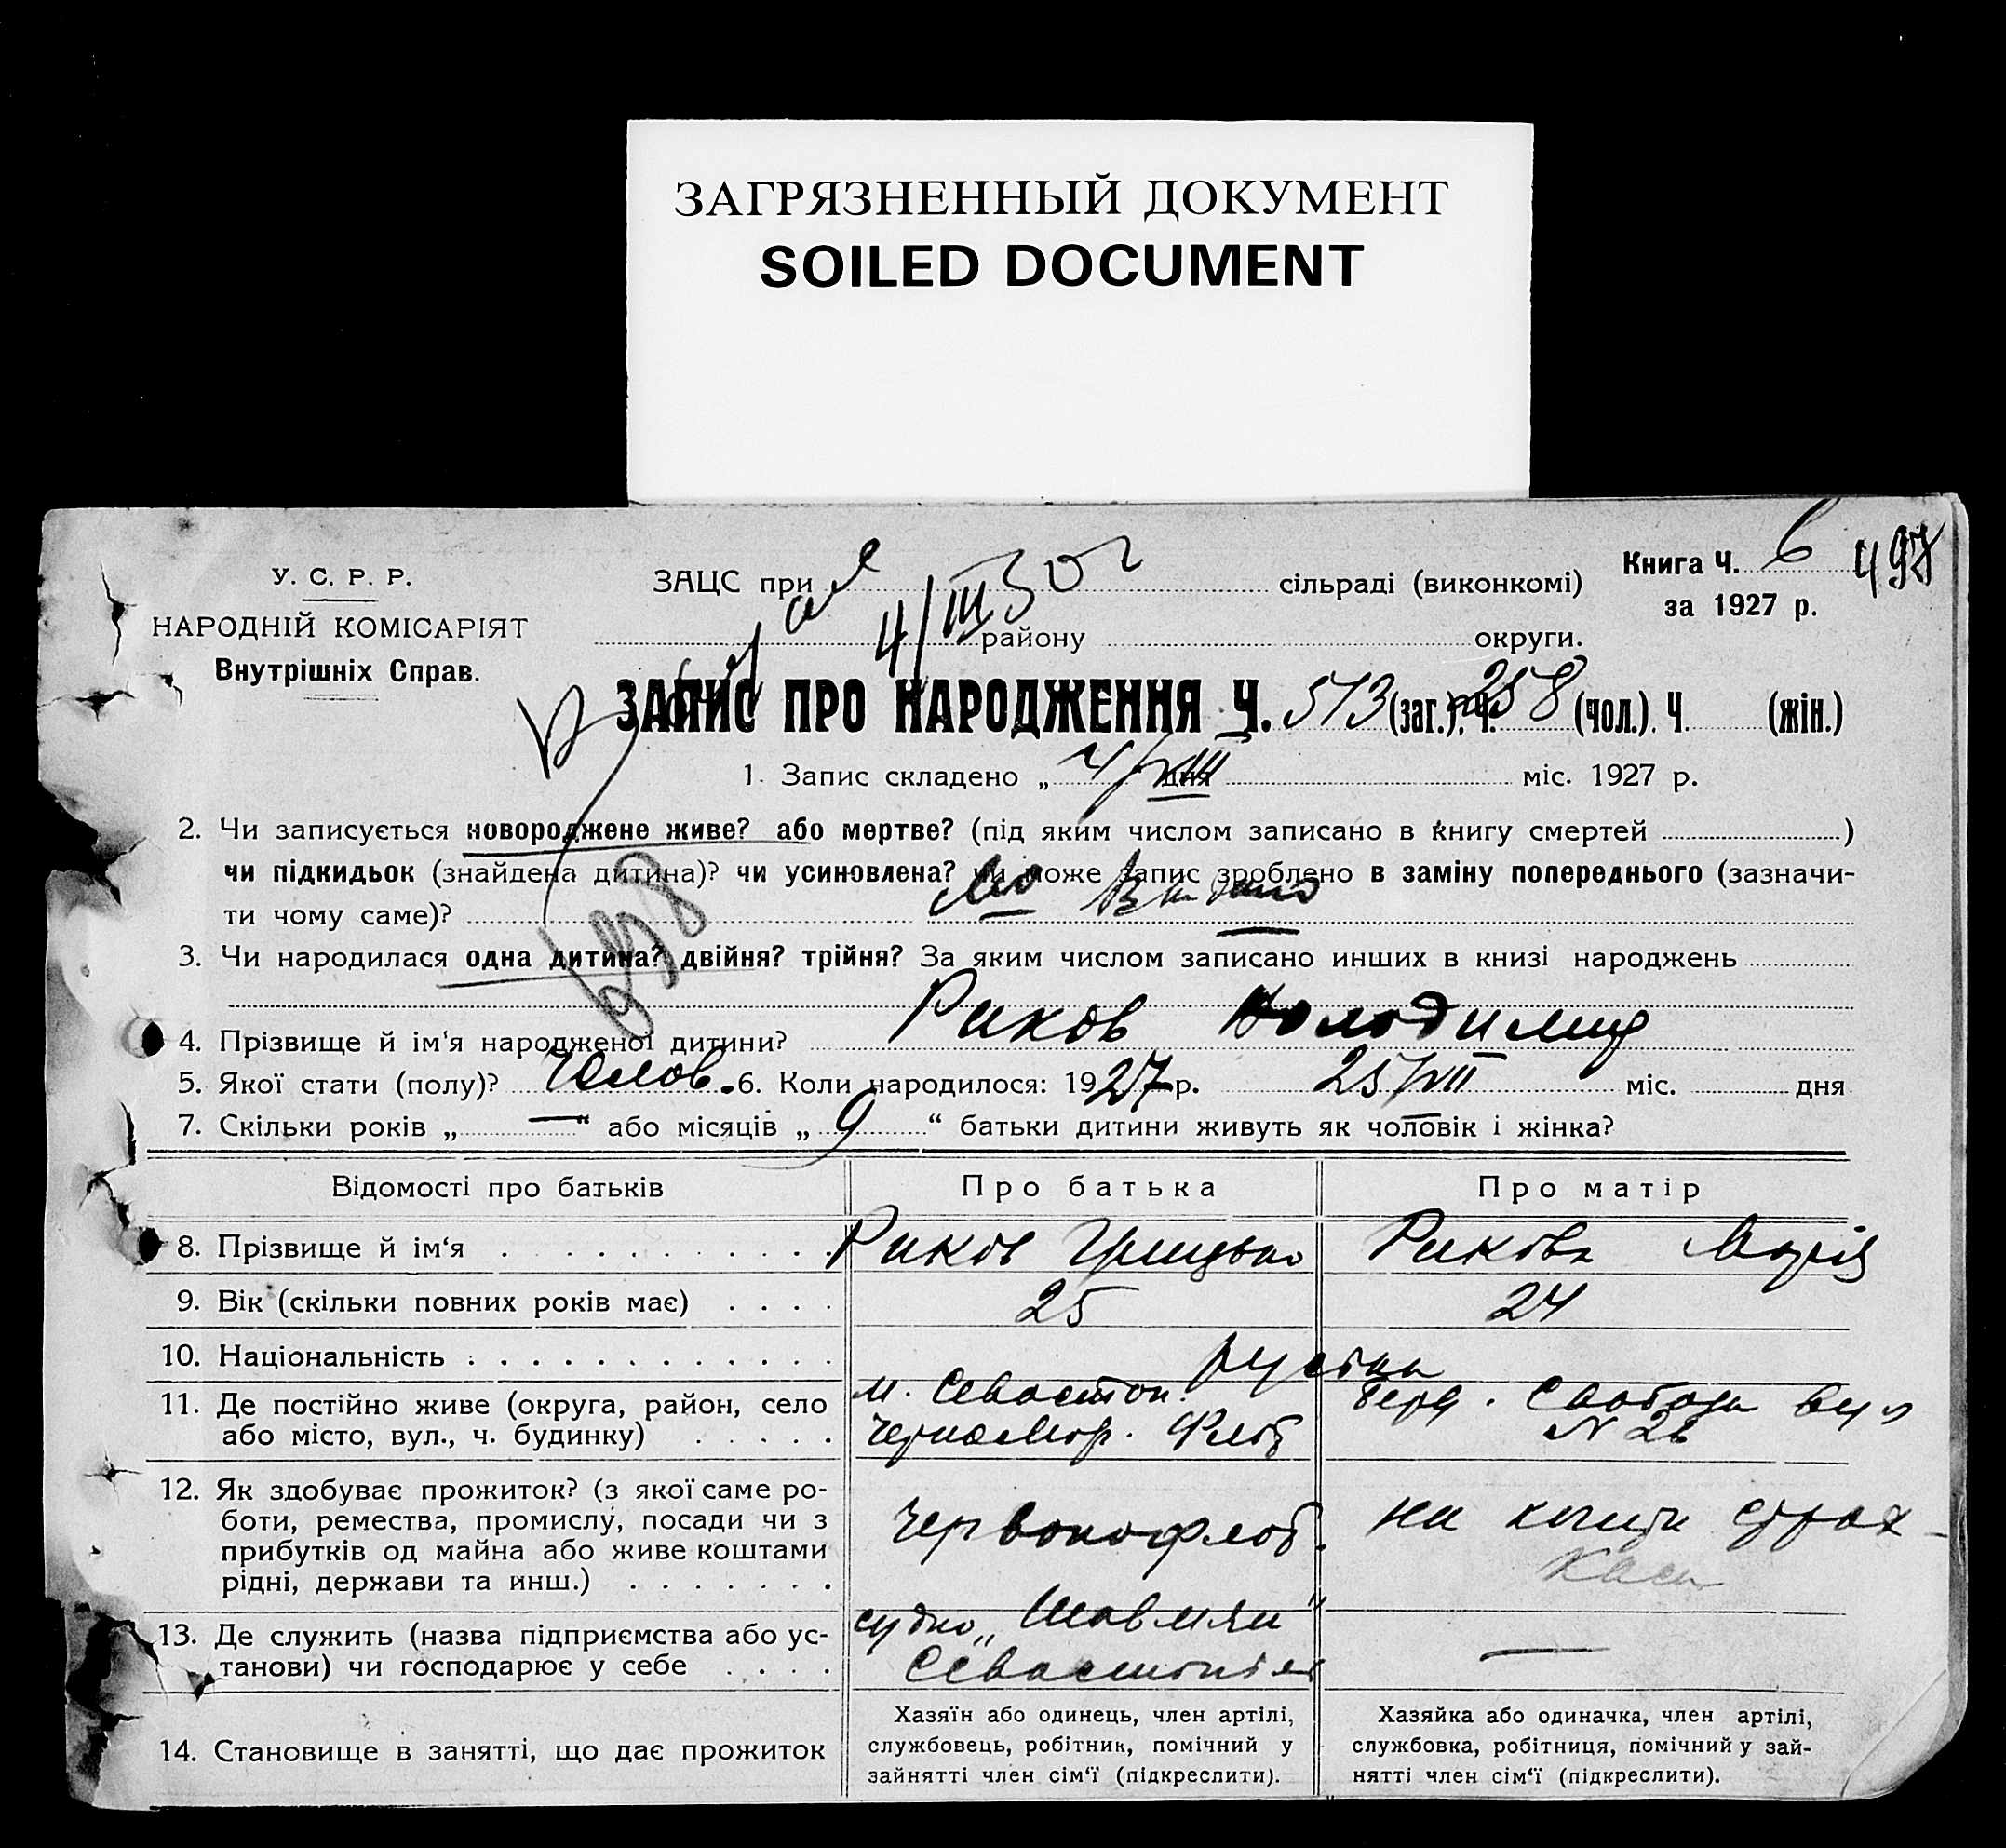 ЗАГРЯЗНЕННЫЙ ДОКУМЕНТ
SOILED DOCUMENT
У. С. Р. Р.
НАРОДНІЙ КОМІСАРІЯТ
Внутрішніх Справ.
ЗАЦС при сільраді (виконкомі)
району округи.
4/III 30
Книга Ч. 6
498
за 1927 р.
ЗАПИС ПРО НАРОДЖЕННЯ Ч. 513 (заг.), Ч. 258 (чол.). Ч. (жін.)
1. Запис складено „ 4/VIII дня міс. 1927 р.
2. Чи записується новороджене живе? або мертве? (під яким числом записано в книгу смертей )
чи підкидьок (знайдена дитина)? чи усиновлена? чи може запис зроблено в заміну попереднього (зазначи-
ти чому саме)?
3. Чи народилася одна дитина? двійня? трійня? За яким числом записано инших в книзі народжень
4. Прізвище й ім'я народженої дитини? Риков Володимир
5. Якої стати (полу)? Чолов. 6. Коли народилося: 1927 р. 25/VII міс. дня
7. Скільки років „ — “ або місяців „ 9 “ батьки дитини живуть як чоловік і жінка?
Відомості про батьків Про батька Про матір
8. Прізвище й ім‘я Риков Грицько Рикова Марія
9. Вік (скільки повних років має) 25 24
10. Національність
11. Де постійно живе (округа, район, село
або місто, вул., ч. будинку)
м. Севастоп.
Черномор. Флот
Берд. Свободи вул
N 26
12. Як здобуває прожиток? (з якої саме ро-
боти, ремества, промислу, посади чи з
прибутків од майна або живе коштами
рідні, держави та инш.)
Червонофлот.
на кошти страх-
каси
13. Де служить (назва підприємства або ус-
танови) чи господарює у себе
судно „Шавмян"
Севастопіль
—
14. Становище в занятті, що дає прожиток
Хазяїн або одинець, член артілі,
службовець, робітник, помічний у
зайнятті член сім‘ї (підкреслити).
Хазяйка або одиначка, член артілі,
службовка, робітниця, помічний у зай-
нятті член сім‘ї (підкреслити).